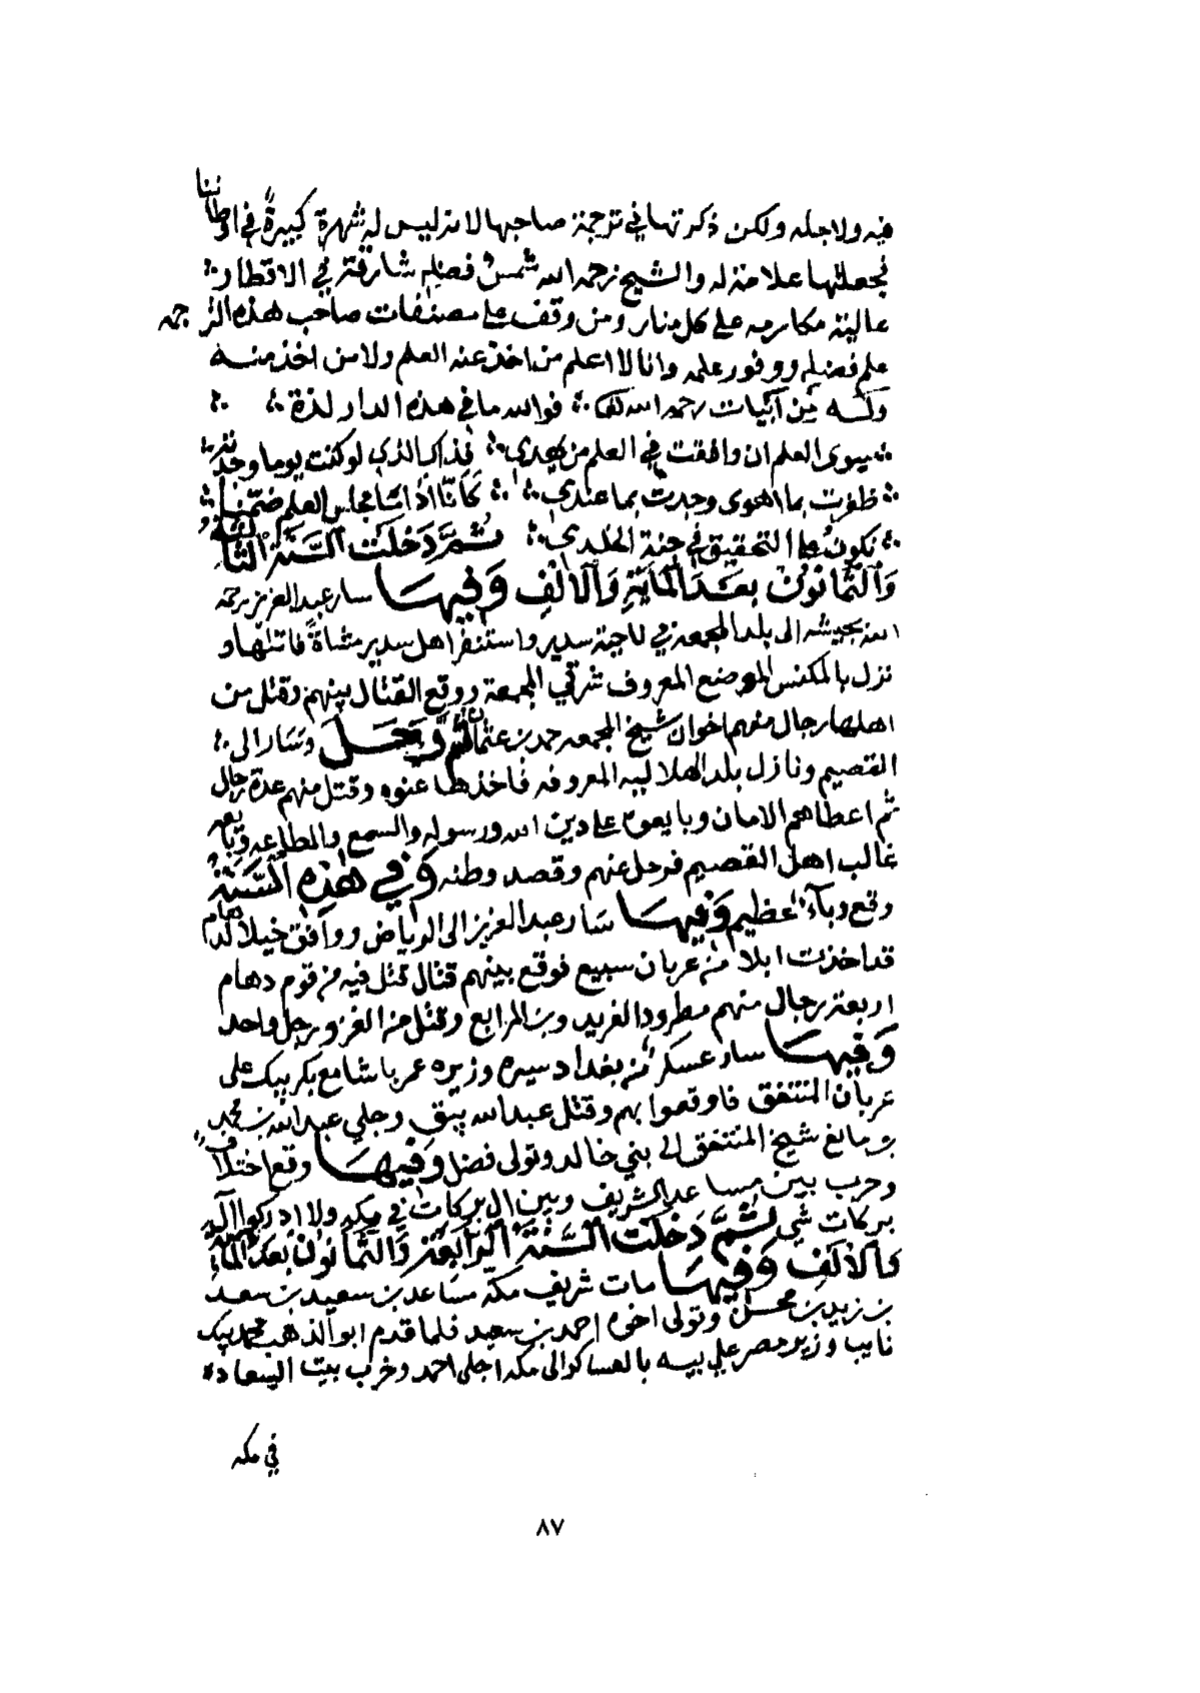 فيه ولاجله ولكن ذكرتها في ترجمة صاحبها لانه ليس له شهرة كبيرة في اوطاننا
فجعلتها علامة له والشيخ رحمه الله شمس فضله شارقة في الاقطار
عالية مكارمه على كل منار ومن وقف على مصنفات صاحب هذه الترجمه
علم فضله ووفور علمه وانا لا اعلم من اخذ عنه العلم ولا من اخذ منه
وله من ابيات رحمه الله تعالى فوالله ما في هذه الدار لذة
سوى العلم ان وافقت في العلم من يهدي فذاك الذي لو كنت يوما وجدته
ظفرت بما اهوى وجدت بما عندي كانا اذا مجلس العلم ضمنا
نكون على التحقيق في جنة الخلدي ثُمَّ دَخَلَت السَّنَة الثالثة
وَالثَّمانون بعد الماية وَالالف وَفيها سار عبد العزيز رحمه
الله بجيشه الى بلد المجمعه في ناحية سدير واستنفر اهل سدير مشاةً فاتلها و
نزل بالمكنس الموضع المعروف شرقي المجمعة ووقع القتال بينهم وقتل من
اهلها رجال منهم اخوان شيخ المجمعه حمد بن عثمان ثُمَّ رَحَل وسار الى
القصيم ونازل بلد الهلاليه المعروفه فاخذها عنوه وقتل منهم عدة رجال
ثم اعطاهم الامان وبايعوه على دين الله ورسوله والسمع والطاعه وبايعه
غالب اهل القصيم فرحل عنهم وقصد وطنه وَفي هٰذِه السَّنَة
وقع وبآء عظيم وَفيها سار عبد العزيز الى الرياض ووافق خيلا لدهام
قد اخذت ابلا من عربان سبيع فوقع بينهم قتال قتل فيه من قوم دهام
اربعة رجال منهم مطرود الغريب وبن المرابع وقتل من الغزو رجل واحد
وَفيها سار عسكر من بغداد سيره وزيره عمر باشا مع بكر بيك على
عربان المنتفق فاوقعوا بهم وقتل عبد الله بيق وجلي عبد الله بن محمد
بن مانع شيخ المنتفق الى بني خالد وتولى فضل وَفيها وقع اختلاف
وحرب بين مساعد الشريف وبين ال بركات في مكه ولا ادركوا آل
بركات شي ثُمَّ دَخَلَت السَّنَة الرابعة وَالثَّمانون بعد الماية
وَالالف وَفيها مات شريف مكه مساعد بن سعيد بن سعد
بن زيد بن محسن وتولى اخوه احمد بن سعيد فلما قدم ابو الذهب محمد بيك
نايب وزير مصر علي بيه بالعساكر الى مكه اجلى احمد وخرب بيت السعاده
في مكه
٨٧